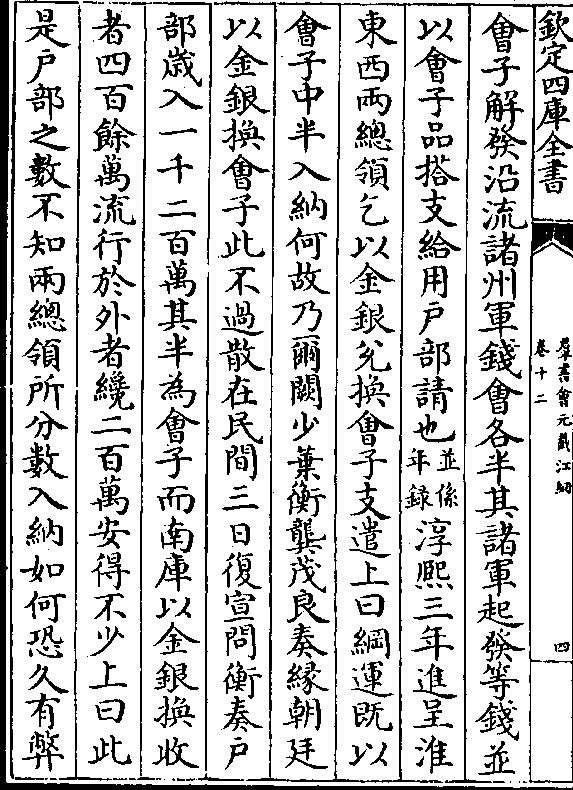 欽定四庫全書
羣書會元截江網
卷十二
四
會子解發沿流諸州軍錢會各半其諸軍起發等錢並
以會子品搭支給用戶部請也並係年錄淳熙三年進呈淮
東西兩總領乞以金銀兌換會子支遣上曰綱運既以
會子中半入納何故乃爾闕少葉衡龔茂良奏縁朝廷
以金銀換會子此不過散在民間三日復宣問衡奏戶
部歲入一千二百萬其半為會子而南庫以金銀換收
者四百餘萬流行於外者纔二百萬安得不少上曰此
是戶部之數不知兩總領所分數入納如何恐久有弊